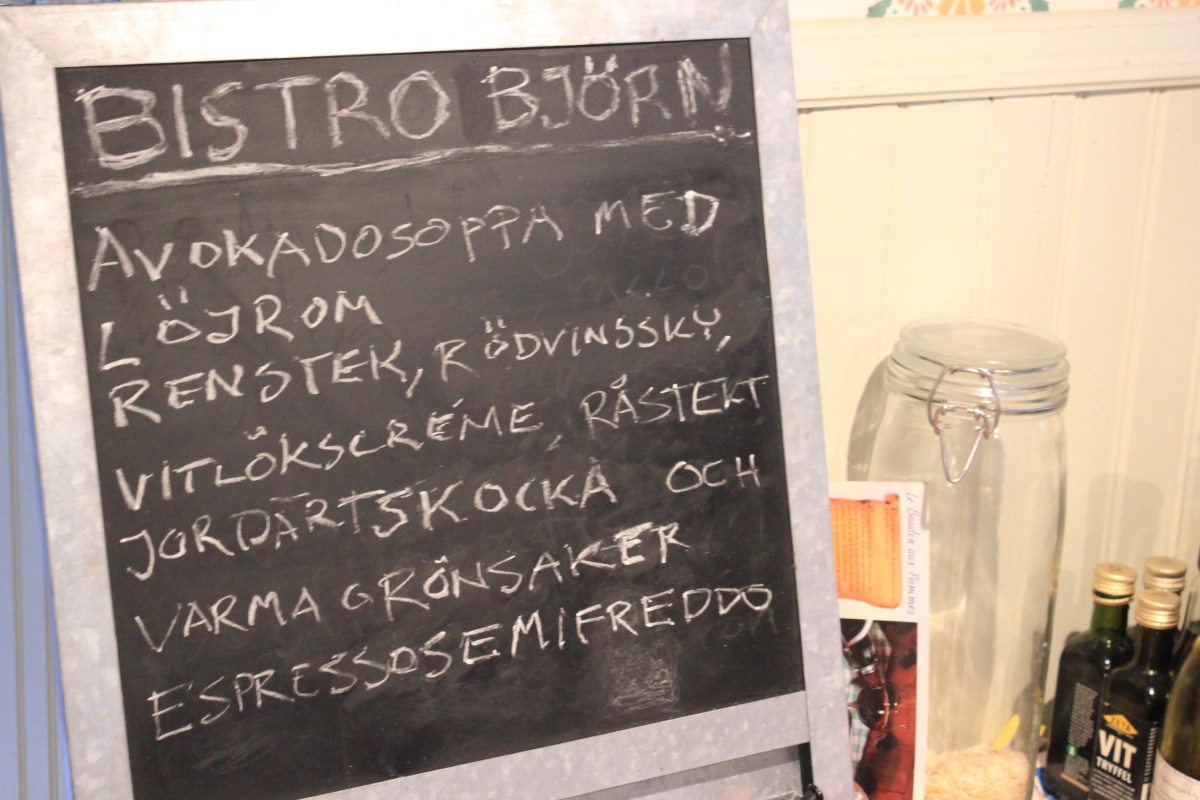 BISTRO BJÖRN
AVOKADOSOPPA MED
LÖJROM
RENSTEK, RÖDVINSSKY,
VITLÖKSCRÉME, RÅSTEKT
JORDÄRTSKOCKA OCH
VARMA GRÖNSAKER
ESPRESSOSEMIFREDDO
Le Boudin aux Pommes
ZETA
VIT
TRYFFEL